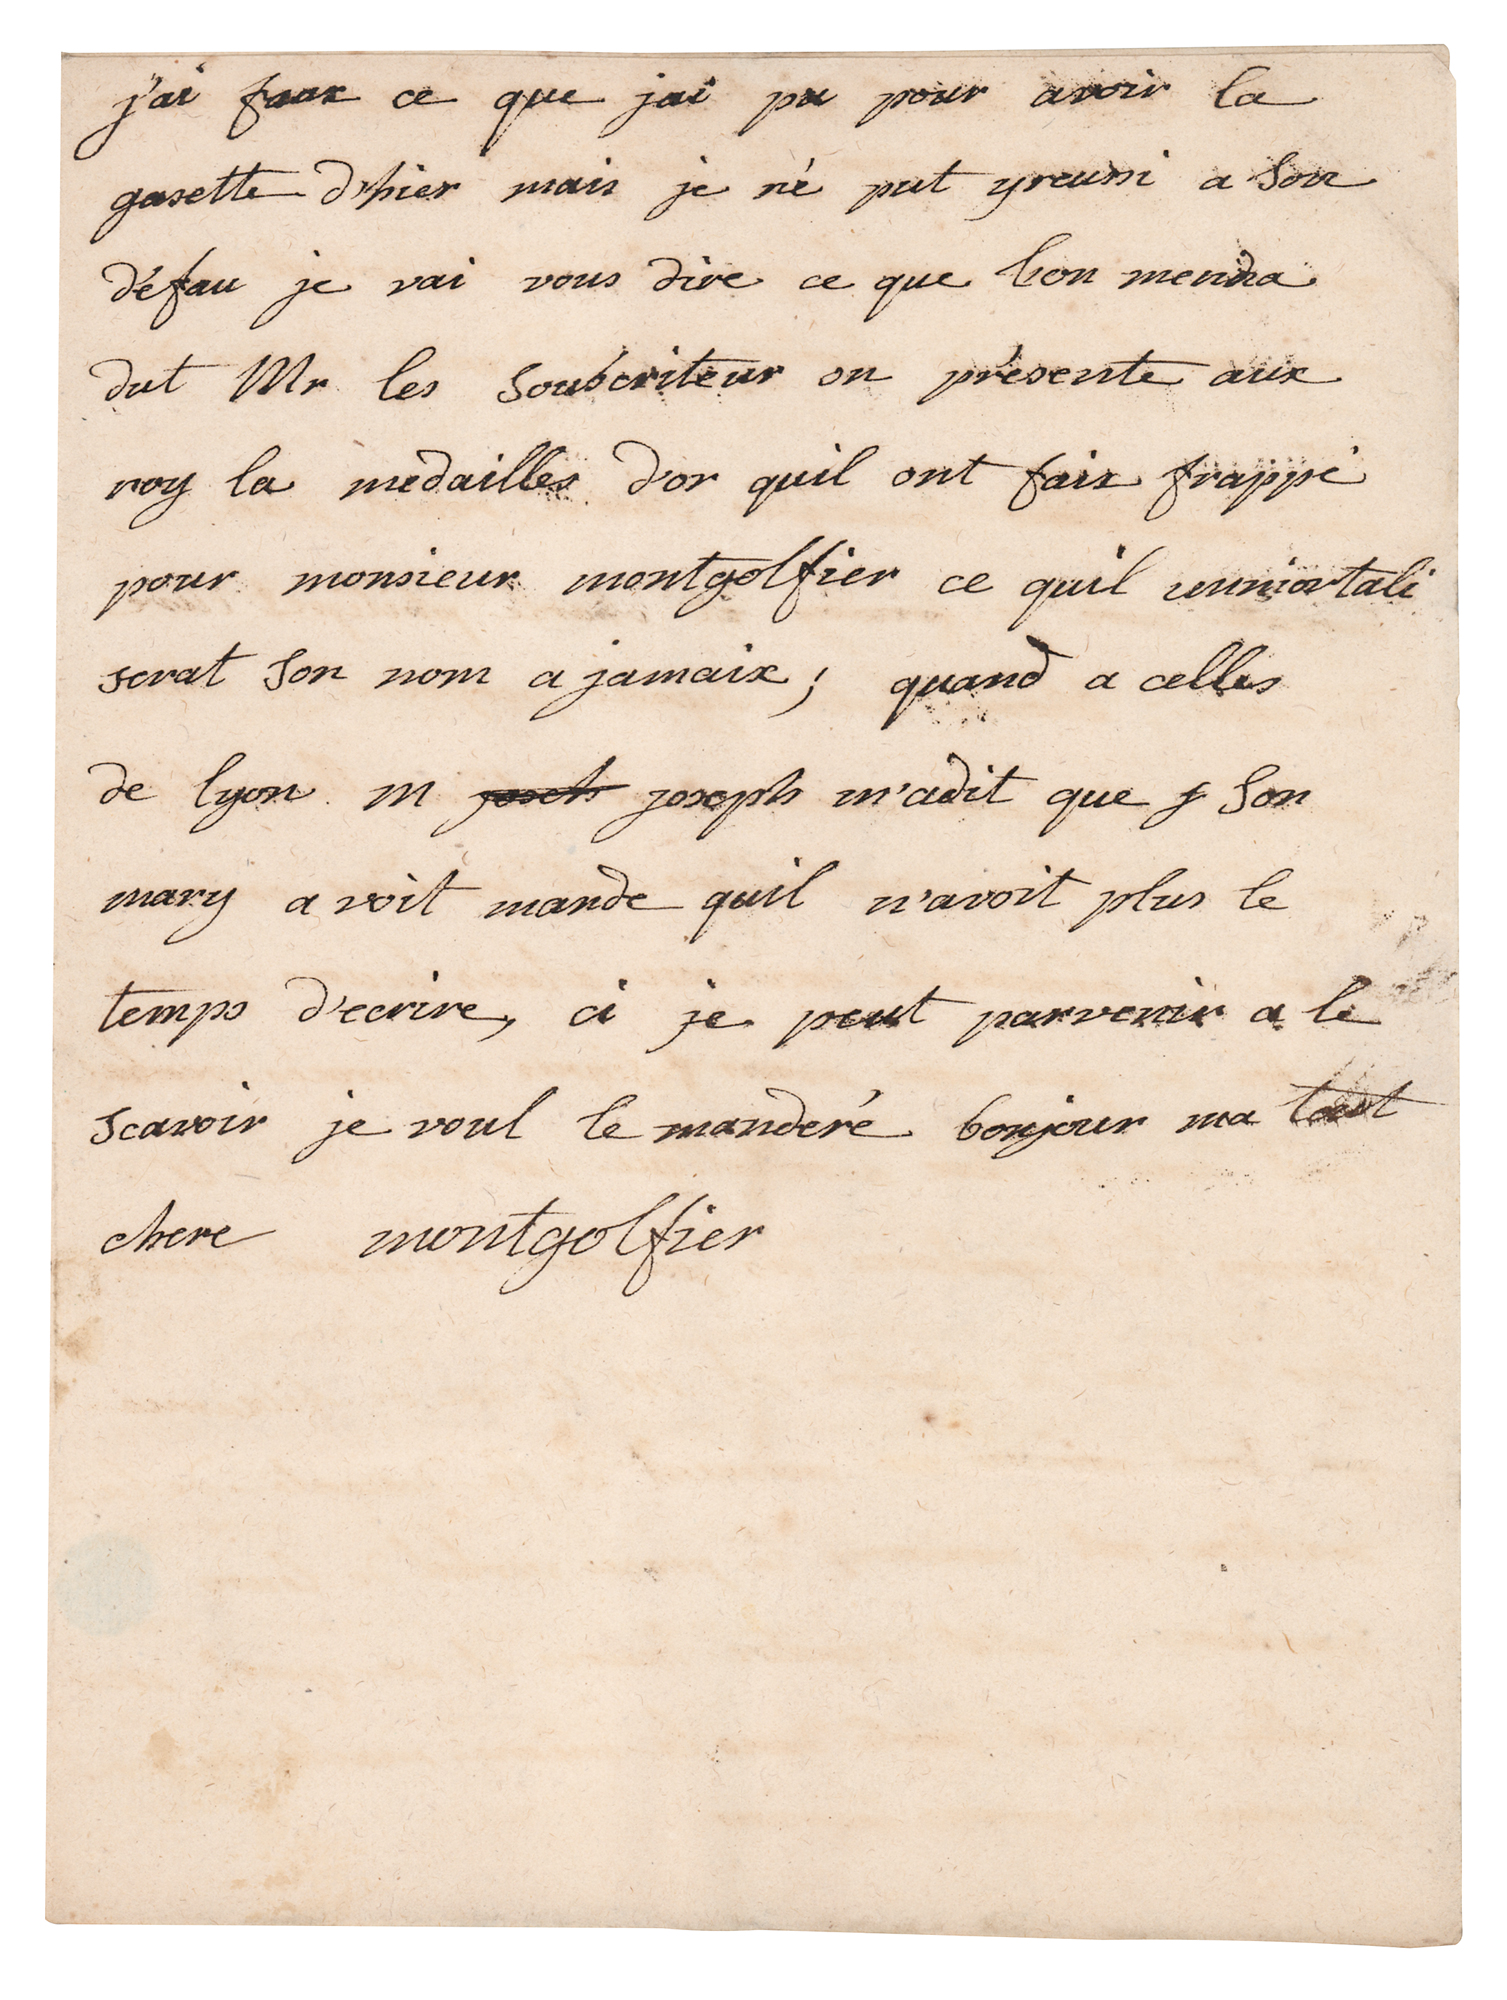 j'ai faix ce que jai pu pour avoir la
gasette d'hier mais je né put y reussi a son
défau je vai vous dire ce que l'on menna
dut Mr les Soubcriteur on présente aux
roy la medailles d'or quil ont faix frappé
pour monsieur montgolfier ce quil immortali
serat Son nom a jamaix ; quand a celles
de lyon M joseph m'adit que Son
mary avoit mande quil n'avoit plus le
temps d'ecrire, ci je peut parvenir a le
scavoir je voul le manderé bonjour ma
chere montgolfier